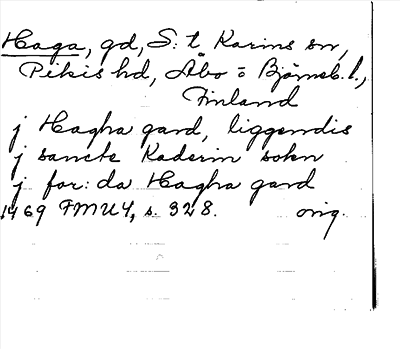 Haga, gd, S:t Karins sn,
Pikis hd, Åbo o Björneb. l.,
Finland
j Hagha gard, liggendis
j sancte Kaderin sokn
j for:da Hagha gard
1469 FMU 4, s. 328. orig.